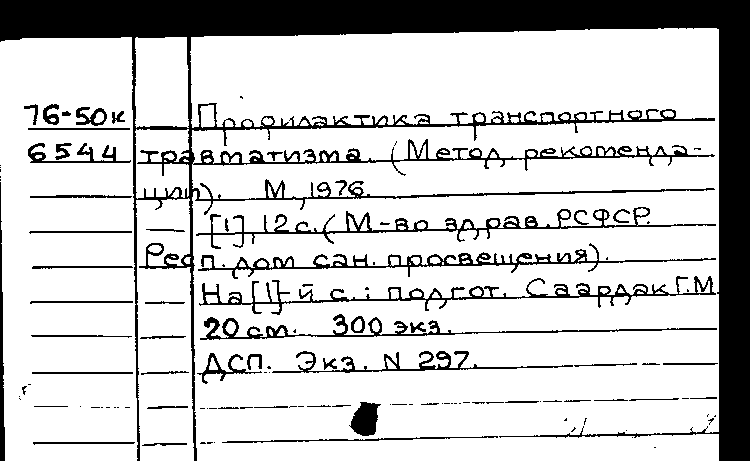 76-50к Профилактика транспортного
6544 травматизма. (Метод. рекоменда-
ции). М., 1976.
[1], 12 с. (М-во здрав. РСФСР.
Респ. дом сан. просвещения).
На [1]-й с.: подгот. Саардак Г.М.
20 см. 300 экз.
ДСП. Экз. N 297.